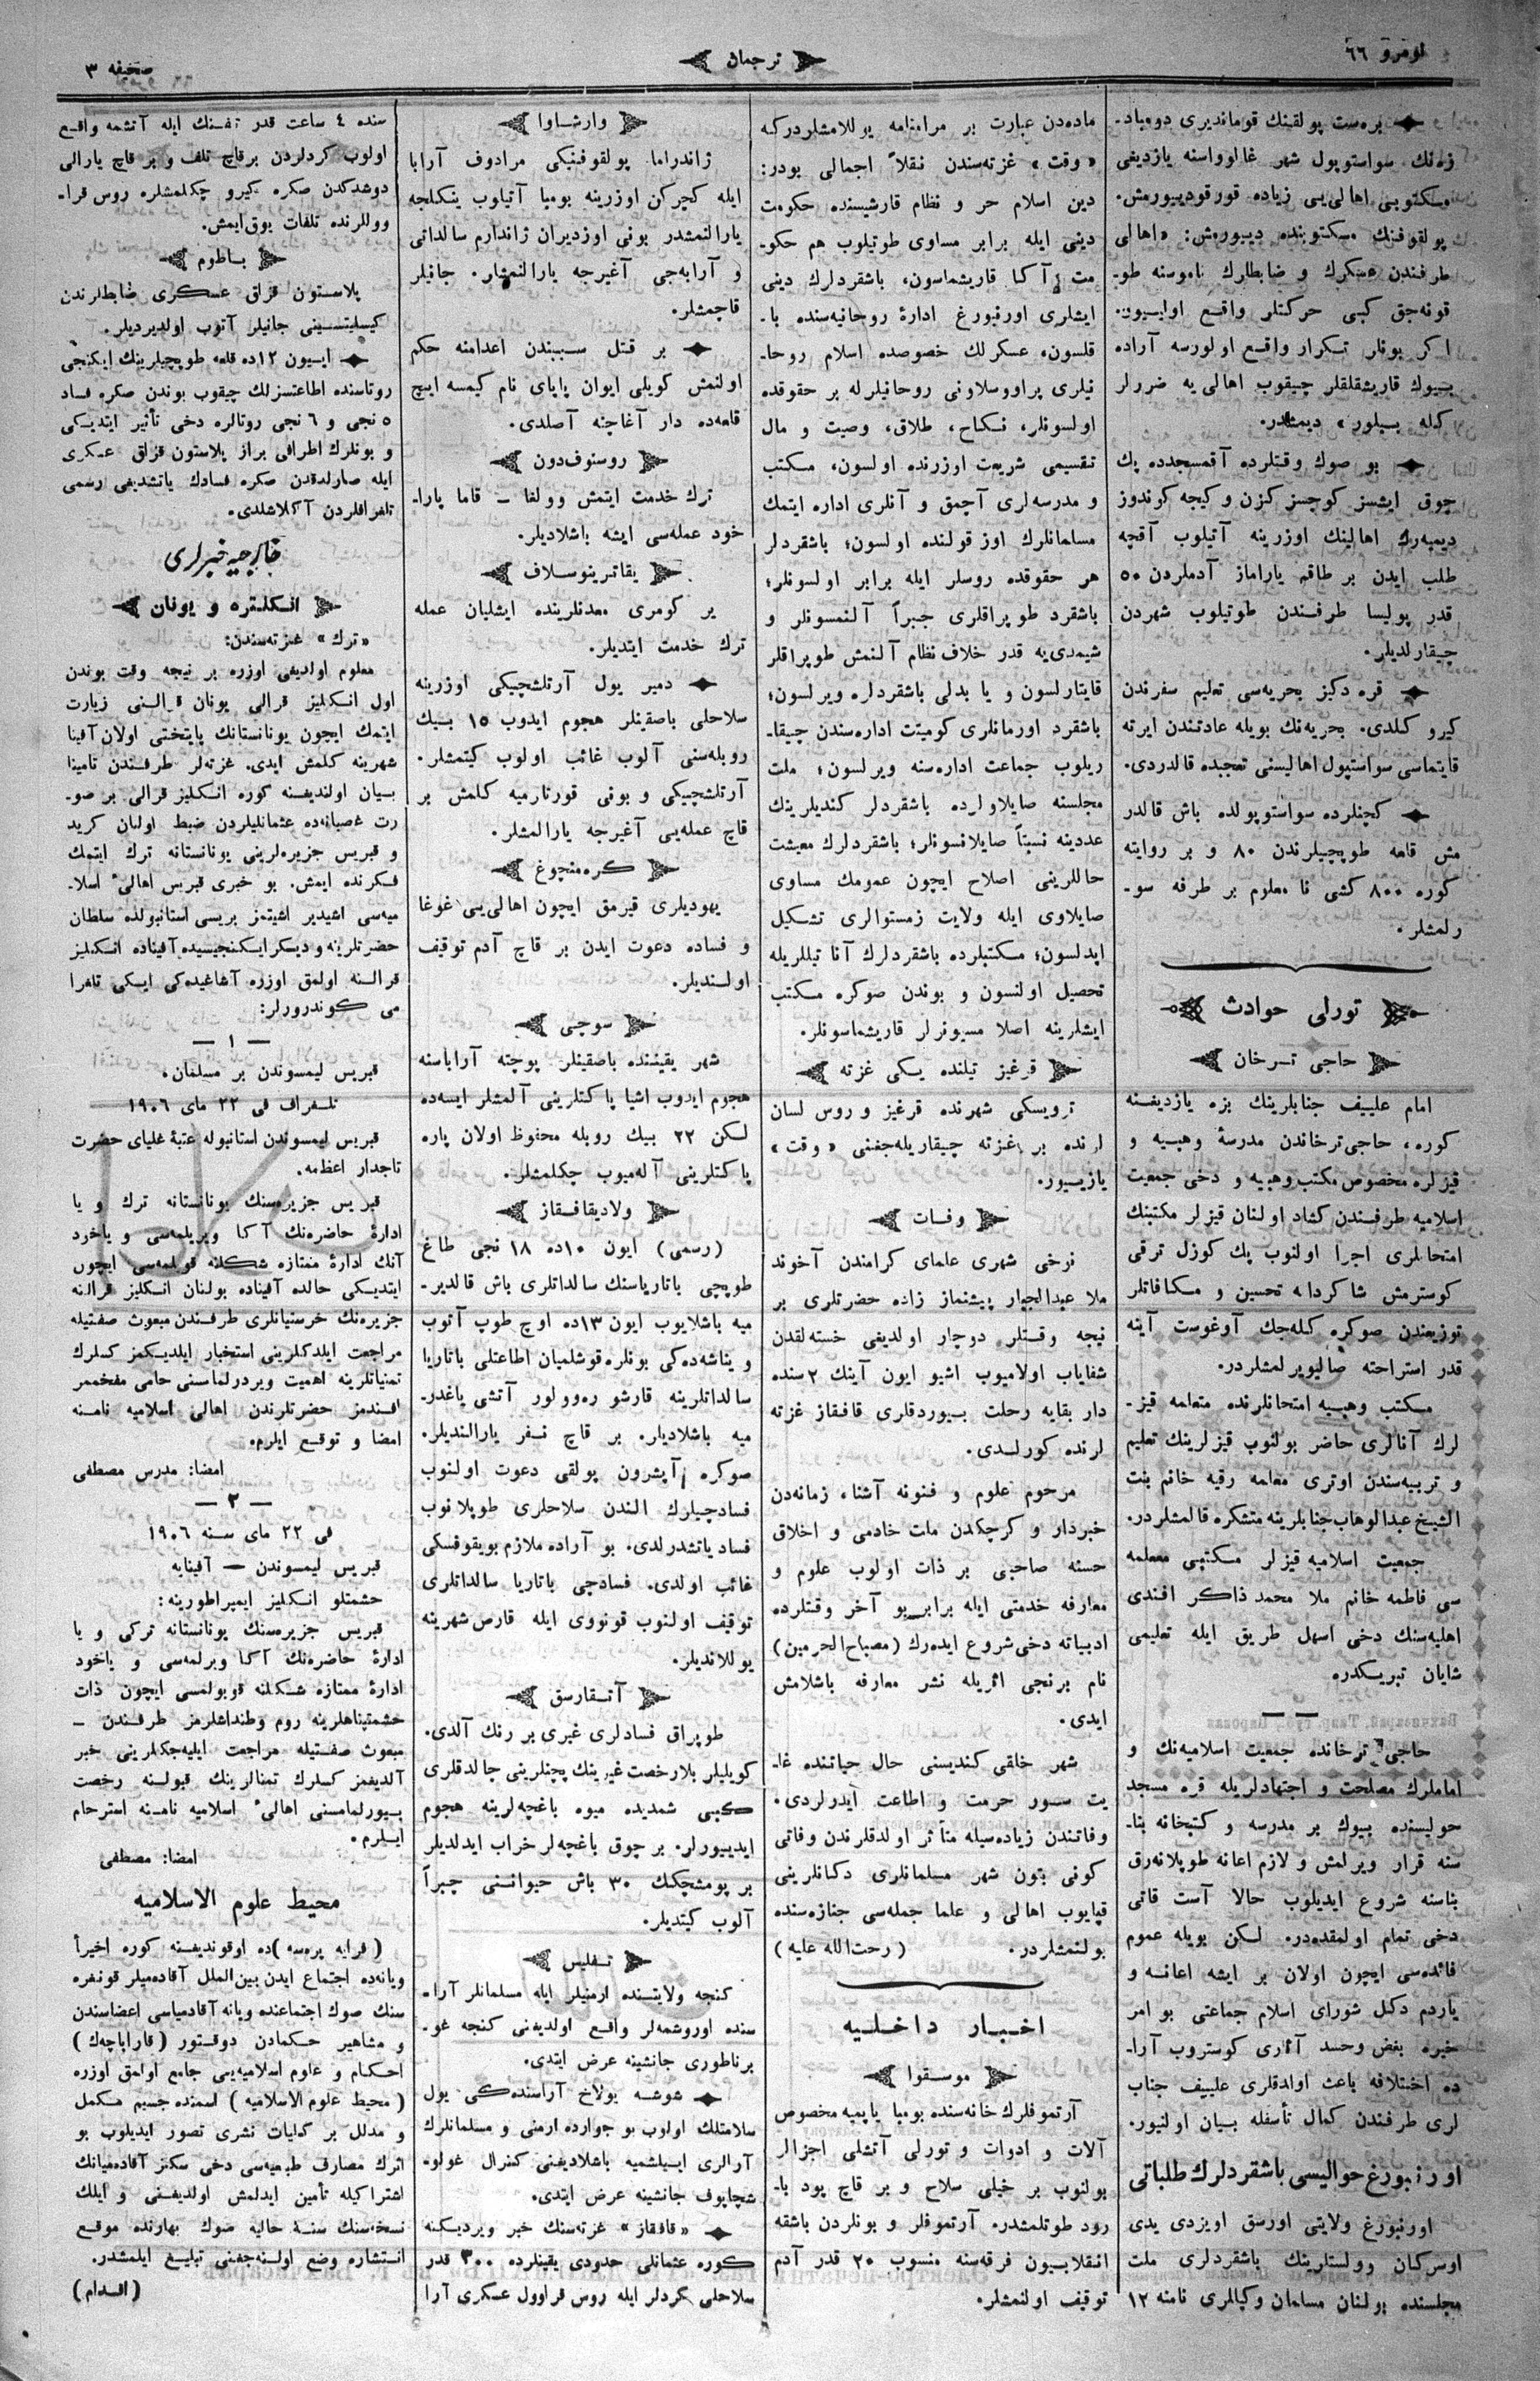 نومرو ٦٦
ترجمان
صحیفه ٣
برەست پولقینك قوماندیری دومباد۔
زەنك سواستوپول شهر غالاواسنه یازدیغی
مكتوبی اهالی‌یی زیاده قورقودییورمش.
پولقوفنك مكتوبنده دییورمش: «اهالی
طرفندن عسكرك و ضابطارك ناموسنه طو۔
قونه‌جق كبی حركتلر واقع اولییور.
اكر بونلر تكرار واقع اولورسه آراده
بیوك قاریشقلقلر چیقوب اهالی‌یه ضررلر
كله بیلور» دیمشدر.
بو صوك وقتلرده آقمسجدده پك
چوق ایشسز كوجسز كزن و كیجه كوندوز
دیمیه‌رك اهالینك اوزرینه آتیلوب آقچه
طلب ایدن بر طاقم یاراماز آدملردن ٥٠
قدر پولیسا طرفندن طوتیلوب شهردن
چیقارلدیلر.
قره دكیز بحریه‌سی تعلیم سفرندن
كیرو كلدی. بحریه‌نك بویله عادتندن ایرته
قایتماسی سواستپول اهالیسنی تعجبده قالدردی.
كچنلرده سواستوپولده باش قالدر
مش قلعه طوپچیلرندن ٨٠ و بر روایته
كوره ٨٠٠ كشی نا معلوم بر طرفه سو۔
رلمشلر.
تورلی حوادث
حاجی ترخان
امام علییف جنابلرینك بزه یازدیغنه
كوره، حاجی‌ترخاندن مدرسهٔ وهبیه و
قیزلره مخصوص مكتب وهبیه و دخی جمعیت
اسلامیه طرفندن كشاد اولنان قیزلر مكتبنك
امتحانلری اجرا اولنوب پك كوزل ترقی
كوسترمش شاكردانه تحسین و مكافاتلر
توزیعندن صوكره كله‌جك آوغوست آینه
قدر استراحته صالیویرلمشلردر.
مكتب وهبیه امتحانلرنده متعلمه قیز۔
لرك آنالری حاضر بولنوب قیزلرینك تعلیم
و تربیه‌سندن اوتری معلمه رقیه خانم بنت
الشیخ عبدالوهاب جنابلرینه متشكره قالمشلردر.
جمعیت اسلامیه قیزلر مكتبی معلمه
سی فاطمه خانم ملا محمد ذاكر افندی
اهلیه‌سنك دخی اسهل طریق ایله تعلیمی
شایان تبریكدر.
حاجی ترخانده جمعیت اسلامیه‌نك و
اماملرك مصلحت و اجتهادلریله قره مسجد
حولیسنده بیوك بر مدرسه و كتبخانه بنا۔
سنه قرار ویرلمش و لازم اعانه طوپلانه‌رق
بناسنه شروع ایدیلوب حالا آست قاتی
دخی تمام اولمقده‌در. لكن بویله عموم
فائده‌سی ایچون اولان بر ایشه اعانه و
یاردم دكل شورای اسلام جماعتی بو امر
خیره بغض وحسد آثاری كوستروب آرا۔
ده اختلافه باعث اولدقلری علییف جناب
لری طرفندن كمال تأسفله بیان اولنیور.
اورنبورغ حوالیسی باشقردلرك طلباتی
اورنبورغ ولایتی اورسق اویزدی یدی
اوسركان وولستلرینك باشقردلری ملت
مجلسنده بولنان مسلمان وكیللری نامنه ١٢
ماده‌دن عبارت بر مرامنامه یوللامشلردركه
«وقت» غزته‌سندن نقلاً اجمالی بودر:
دین اسلام حر و نظام قارشیسنده حكومت
دینی ایله برابر مساوی طوتیلوب هم حكو۔
مت آكا قاریشماسون، باشقردلرك دینی
ایشلری اورنبورغ ادارهٔ روحانیه‌سنده با۔
قلسون، عسكرلك خصوصده اسلام روحا۔
نیلری پراووسلاونی روحانیلرله بر حقوقده
اولسونلر، نكاح، طلاق، وصیت و مال
تقسیمی شریعت اوزرنده اولسون، مكتب
و مدرسه‌لری آچمق و آنلری اداره ایتمك
مسلمانلرك اوز قولنده اولسون؛ باشقردلر
هر حقوقده روسلر ایله برابر اولسونلر؛
باشقرد طوپراقلری جبراً آلنمسونلر و
شیمدی‌یه قدر خلاف نظام آلنمش طوپراقلر
قایتارلسون و یا بدلی باشقردلره ویرلسون؛
باشقرد اورمانلری كومیتت اداره‌سندن چیقا۔
ریلوب جماعت اداره‌سنه ویرلسون؛ ملت
مجلسنه صایلاولرده باشقردلر كندیلرینك
عددینه نسبتاً صایلانسونلر؛ باشقردلرك معیشت
حاللرینی اصلاح ایچون عمومك مساوی
صایلاوی ایله ولایت زمستوالری تشكیل
ایدلسون؛ مكتبلرده باشقردلرك آنا تیللریله
تحصیل اولنسون و بوندن صوكره مكتب
ایشلرینه اصلا مسیونرلر قاریشماسونلر.
قرغیز تیلنده یكی غزته
ترویسكی شهرنده قرغیز و روس لسان
لرنده بر غزته چیقاریله‌جغنی «وقت»
یازییور.
وفات
نوخی شهری علمای كرامندن آخوند
ملا عبدالجبار پیشنماز زاده حضرتلری بر
نیجه وقتلر دوچار اولدیغی خسته‌لقدن
شفایاب اولامیوب اشبو ایون آینك ٢سنده
دار بقایه رحلت بیوردقلری قافقاز غزته
لرنده كورلدی.
مرحوم علوم و فنونه آشنا، زمانه‌دن
خبردار و كرچكدن ملت خادمی و اخلاق
حسنه صاحبی بر ذات اولوب علوم و
معارفه خدمتی ایله برابر بو آخر وقتلرده
ادبیاته دخی شروع ایده‌رك (مصباح‌الحرمین)
نام برنجی اثریله نشر معارفه باشلامش
ایدی.
شهر خلقی كندیسنی حال حیاتنده غا۔
یت سور حرمت و اطاعت ایدرلردی.
وفاتندن زیاده‌سیله متأثر اولدقلرندن وفاتی
كونی بتون شهر مسلمانلری دكانلرینی
قپایوب اهالی و علما جمله‌سی جنازه‌سنده
بولنمشلردر. (رحت‌الله علیه)
اخبار داخلیه
موسقوا
آرتموفلرك خانه‌سنده بومبا یاپمیه مخصوص
آلات و ادوات و تورلی آتشلی اجزالر
بولنوب بر خیلی سلاح و بر قاچ پود با۔
رود طوتلمشدر. آرتموفلر و بونلردن باشقه
انقلابیون فرقه‌سنه منسوب ٢٠ قدر آدم
توقیف اولنمشلر.
وارشاوا
ژاندراما پولقوفنیكی مرادوف آرابا
ایله كچركن اوزرینه بومبا آتیلوب ینكلجه
یارالنمشدر بونی اوزدیران ژاندارم سالداتی
و آرابه‌جی آغیرجه یارالنمشلر. جانیلر
قاچمشلر.
بر قتل سببندن اعدامنه حكم
اولنمش كویلی ایوان پاپای نام كیمسه ایچ
قلعه‌ده دار آغاجنه آصلدی.
روستوف‌دون
ترك خدمت ایتمش وولغا – قاما پارا۔
خود عمله‌سی ایشه باشلادیلر.
یقاترینوسلاف
یر كومری معدنلرینده ایشلیان عمله
ترك خدمت ایتدیلر.
دمیر یول آرتلشچیكی اوزرینه
سلاحلی باصقینلر هجوم ایدوب ١٥ بیك
روبله‌سنی آلوب غائب اولوب كیتمشلر.
آرتلشچیكی و بونی قورتارمیه كلمش بر
قاچ عمله‌یی آغیرجه یارالمشلر.
كره‌منچوغ
یهودیلری قیرمق ایچون اهالی‌یی غوغا
و فساده دعوت ایدن بر قاچ آدم توقیف
اولندیلر.
سوچی
شهر یقیننده باصقینلر پوچته آراباسنه
هجوم ایدوب اشیا پاكتلرینی آلمشلر ایسه‌ده
لكن ٢٢ بیك روبله محفوظ اولان پاره
پاكتلرینی آله‌میوب چكلمشلر.
ولادیقافقاز
(رسمی) ایون ١٠ده ١٨ نجی طاغ
طوپچی باتاریاسنك سالداتلری باش قالدیر۔
میه باشلایوب ایون ١٣ده اوچ طوپ آتوب
و یناشه‌ده‌كی بونلره قوشلمیان اطاعتلی باتاریا
سالداتلرینه قارشو ره‌وولور آتشی یاغدر۔
میه باشلادیلر. بر قاچ نفر یارالندیلر.
صوكره آپشرون پولقی دعوت اولنوب
فسادچیلرك الندن سلاحلری طوپلانوب
فساد یاتشدرلدی. بو آراده ملازم بویقوفسكی
غائب اولدی. فسادجی باتاریا سالداتلری
توقیف اولنوب قونووی ایله قارص شهرینه
یوللاندیلر.
آتقارسق
طوپراق فسادلری غیری بر رنك آلدی.
كویلیلر بلارخصت غیرینك پچنلرینی چالدقلری
كبی شمدیده میوه باغچه‌لرینه هجوم
ایدییورلر. بر چوق باغچه‌لر خراب ایدلدیلر
بر پومشچكك ٣٠ باش حیوانی جبراً
آلوب كیتدیلر.
تفلیس
كنجه ولایتنده ارمنیلر ایله مسلمانلر آرا۔
سنده اوروشمه‌لر واقع اولدیغنی كنجه غو۔
برناطوری جانشینه عرض ایتدی.
شوشه یولاخ آراسنده‌كی یول
سلامتلك اولوب بو جوارده ارمنی و مسلمانلرك
آرالری ایلشمیه باشلادیغنی كنرال غولو۔
شچاپوف جانشینه عرض ایتدی.
«قافقاز» غزته‌سنك خبر ویردیكنه
كوره عثمانلی حدودی یقینلرده ٣٠٠ قدر
سلاحلی كردلر ایله روس قراوول عسكری آرا
سنده ٤ ساعت قدر تفنك ایله آتشمه واقع
اولوب كردلردن برقاچ تلف و بر قاچ یارالی
دوشدكدن صكره كیرو چكلمشلره روس قرا۔
وولرنده تلفات یوق‌ایمش.
باطوم
پلاستون قزاق عسكری ضابطلرندن
كیسلیتسینی جانیلر آتوب اولدیردیلر.
ایسیون ١٢ده قلعه طوپچیلرینك ایكنجی
روتاسنده اطاعتسزلك چیقوب بوندن صكره فساد
٥ نجی و ٦ نجی روتالره دخی تأثیر ایتدیكی
و بونلرك اطرافی براز پلاستون قزاق عسكری
ایله صارلدقدن صكره فسادك یاتشدیغی رسمی
تلغرافلردن آكلاشلدی.
خارجیه خبرلری
انكلتره و یونان
«ترك» غزته‌سندن:
معلوم اولدیغی اوزره بر نیجه وقت بوندن
اول انكلیز قرالی یونان قرالنی زیارت
ایتمك ایچون یونانستانك پایتختی اولان آفینا
شهرینه كلمش ایدی. غزته‌لر طرفندن تامینا
بیان اولندیغنه كوره انكلیز قرالی بر صو۔
رت غصبانه‌ده عثمانلیلردن ضبط اولنان كرید
و قبریس جزیره‌لرینی یونانستانه ترك ایتمك
فكرنده ایمش. بو خبری قبریس اهالیٔ اسلا۔
میه‌سی اشیدیر اشیتمز بریسی استانبولده سلطان
حضرتلرینه و دیكر ایكنجیسیده آفیناده انكلیز
قرالنه اولمق اوزره آشاغیده‌كی ایكی تلغرا
می كوندرورلر:
— ١ —
قبریس لیمسوندن بر مسلمان.
تلغراف فی ٢٢ مای ١٩٠٦
قبریس لیمسوندن استانبوله عتبهٔ علیای حضرت
تاجدار اعظمه.
قبریس جزیره‌سنك یونانستانه ترك و یا
ادارهٔ حاضره‌نك آكا ویریلمه‌سی و یاخود
آنك ادارهٔ ممتازه شكلنه قویلمه‌سی ایچون
ایتدیكی حالده آفیناده بولنان انكلیز قرالنه
جزیره‌نك خرستیانلری طرفندن مبعوث صفتیله
مراجعت ایلدكلرینی استخبار ایلدیكمز كسلرك
تمنیاتلرینه اهمیت ویردرلماسنی حامی مفخممز
افندمز حضرتلرندن اهالی اسلامیه نامنه
امضا و توقع ایلرم.
امضا: مدرس مصطفی
— ٢ —
فی ٢٢ مای سنه ١٩٠٦
قبریس لیمسوندن — آفینایه
حشمتلو انكلیز ایمپراطورینه:
قبریس جزیره‌سنك یونانستانه تركی و یا
ادارهٔ حاضره‌نك آكا ویرلمه‌سی و یاخود
ادارهٔ ممتازه شكلنه قویولمسی ایچون ذات
حشمتپناهلرینه روم وطنداشلرمز طرفندن –
مبعوث صفتیله مراجعت ایلیه‌جكلرینی خبر
آلدیغمز كسلرك تمنالرینك قبولنه رخصت
بیورلمامسنی اهالیٔ اسلامیه نامنه استرحام
ایلرم.
امضا: مصطفی
محیط علوم الاسلامیه
(فرایه پره‌سه)ده اوقوندیغنه كوره اخیراً
ویانه‌ده اجتماع ایدن بین‌الملل آقاده‌میلر قونفره
سنك صوك اجتماعنده ویانه آقادمیاسی اعضاسندن
و مشاهیر حكمادن دوقتور (قاراباچه‌ك)
احكام و علوم اسلامیه‌یی جامع اولمق اوزره
(محیط علوم الاسلامیه) اسمنده جسیم مكمل
و مدلل بر كلیات نشری تصور ایدیلوب بو
اثرك مصارف طبعیه‌سی دخی سكز آقاده‌میانك
اشتراكیله تأمین ایدلمش اولدیغنی و ایلك
نسخه‌سنك سنهٔ حالیه صوك بهارنده موقع
انتشاره وضع اولنه‌جغنی تبلیغ ایلمشدر.
(اقدام)